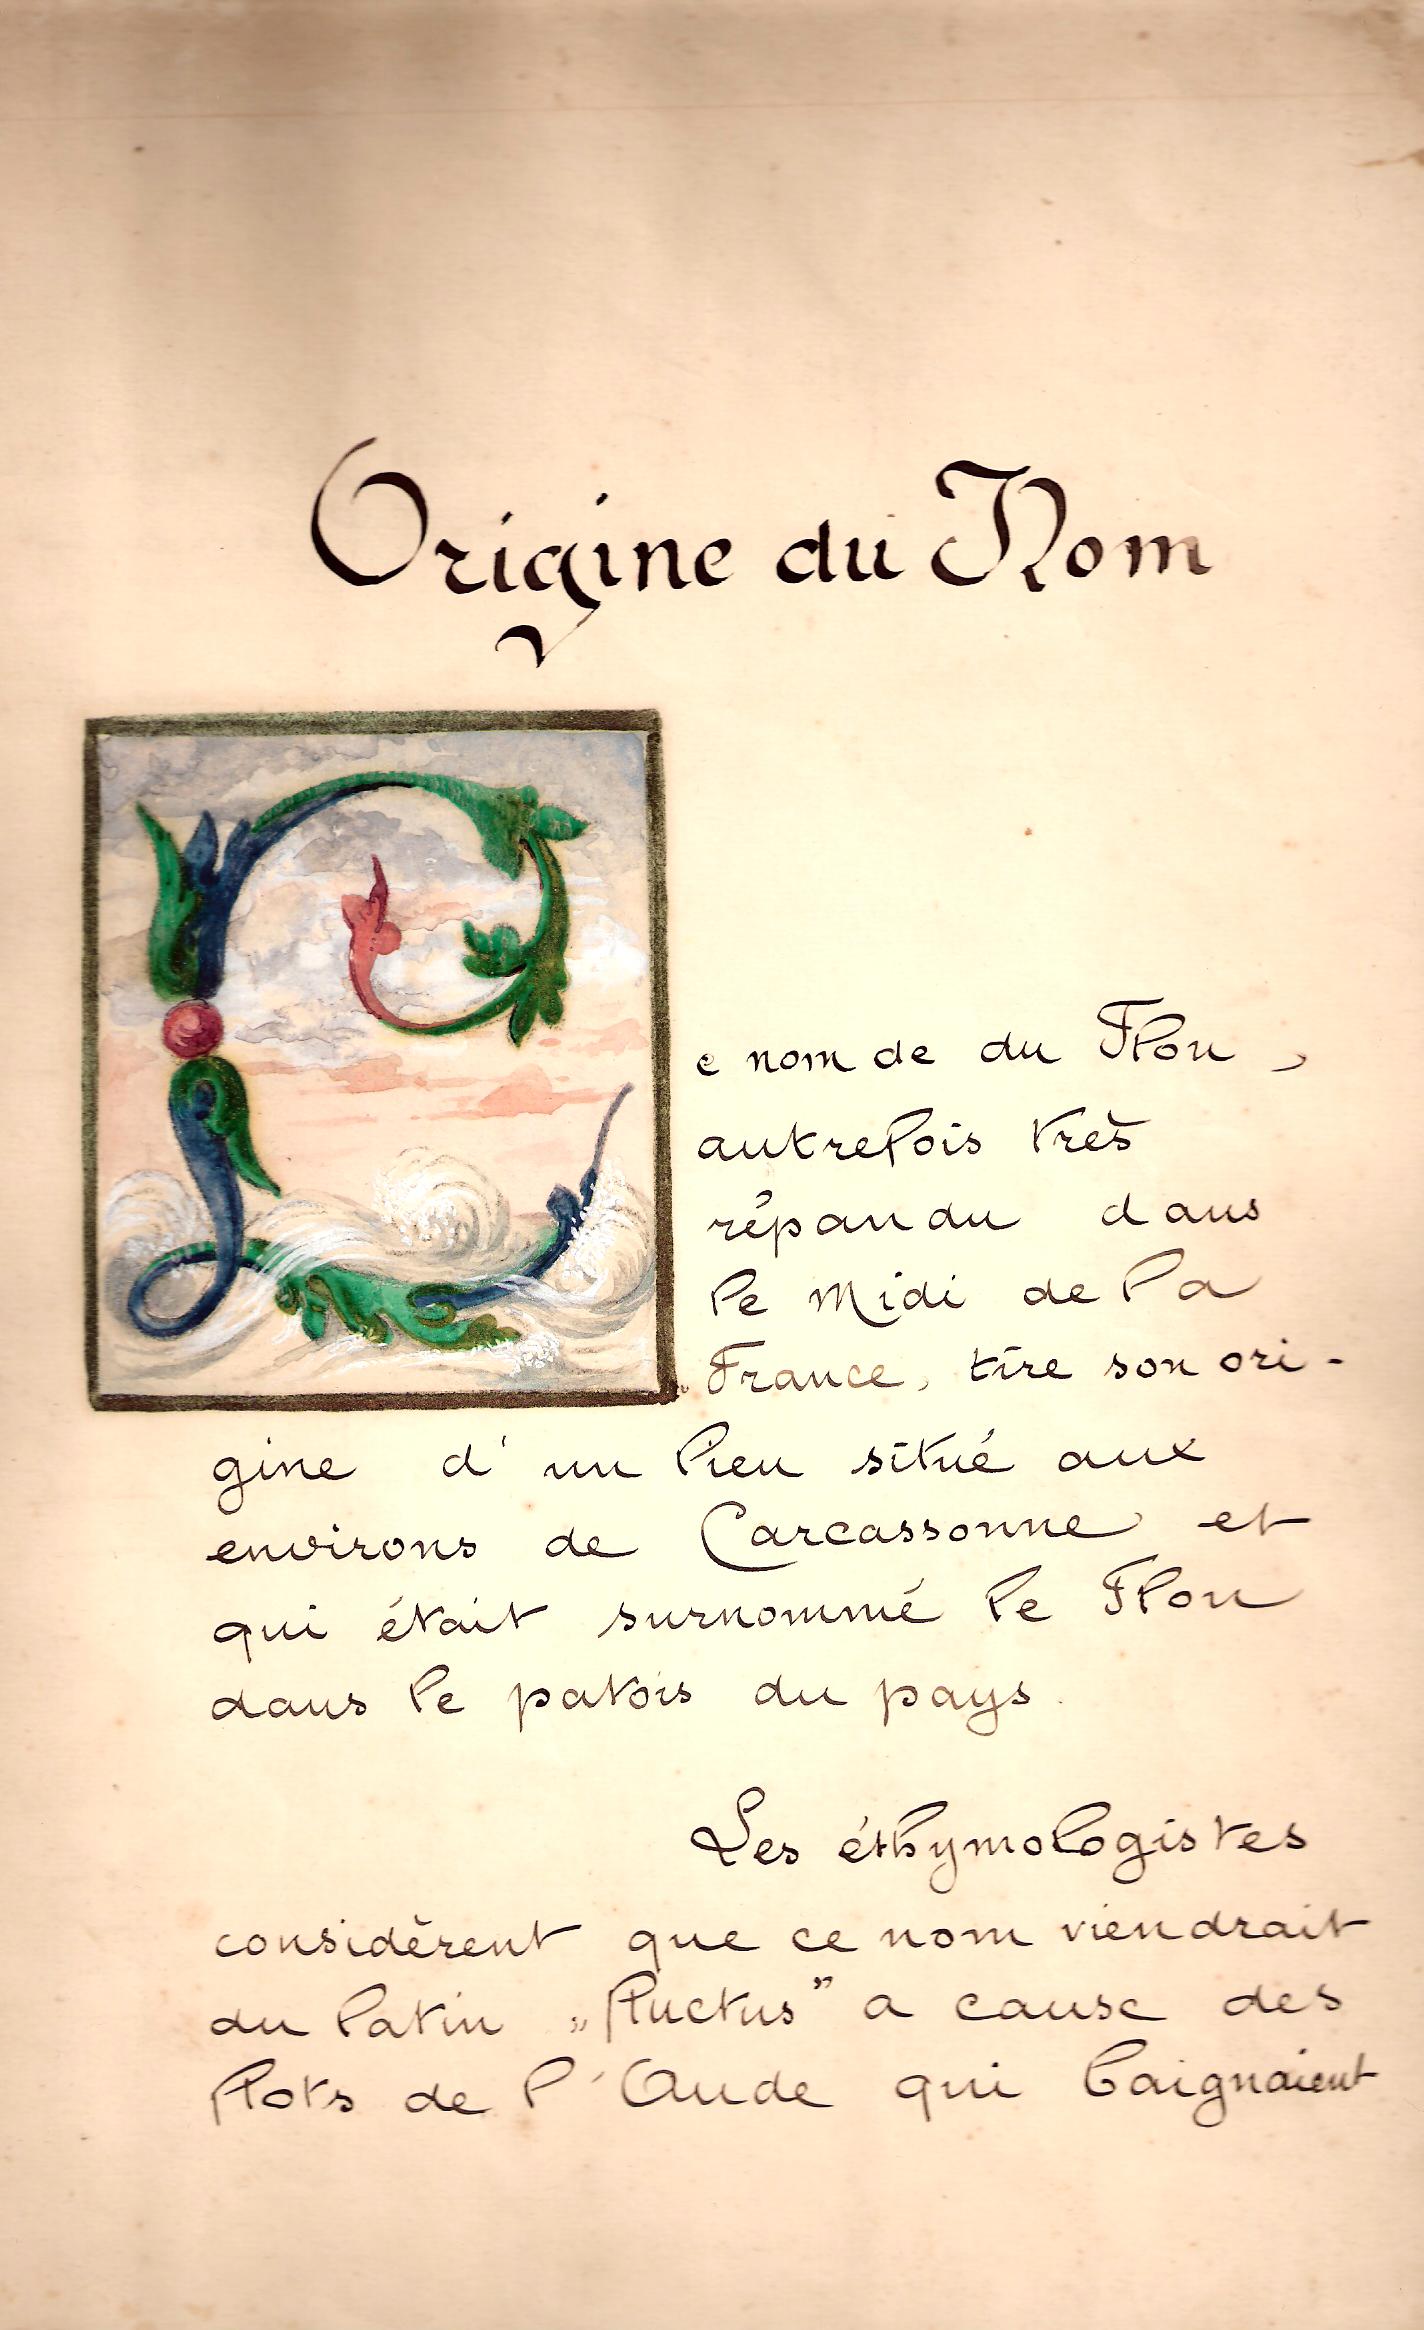 Origine du Nom
Le nom de du Flou,
autrefois très
répandu dans
le Midi de la
France, tire son ori-
gine d'un lieu situé aux
environs de Carcassonne et
qui était surnommé le Flou
dans le patois du pays.
Les éthymologistes
considèrent que ce nom viendrait
du latin „fluctus” a cause des
flots de l'Aude qui baignaient